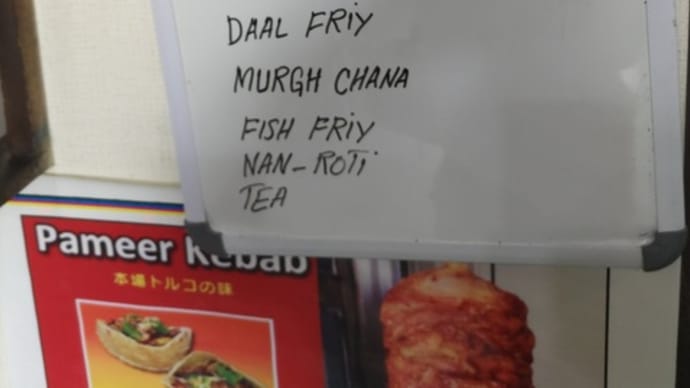 DAAL FRiY
MURGH CHANA
FISH FRiY
NAN-ROTi
TEA
Pameer Kebab
本場トルコの味